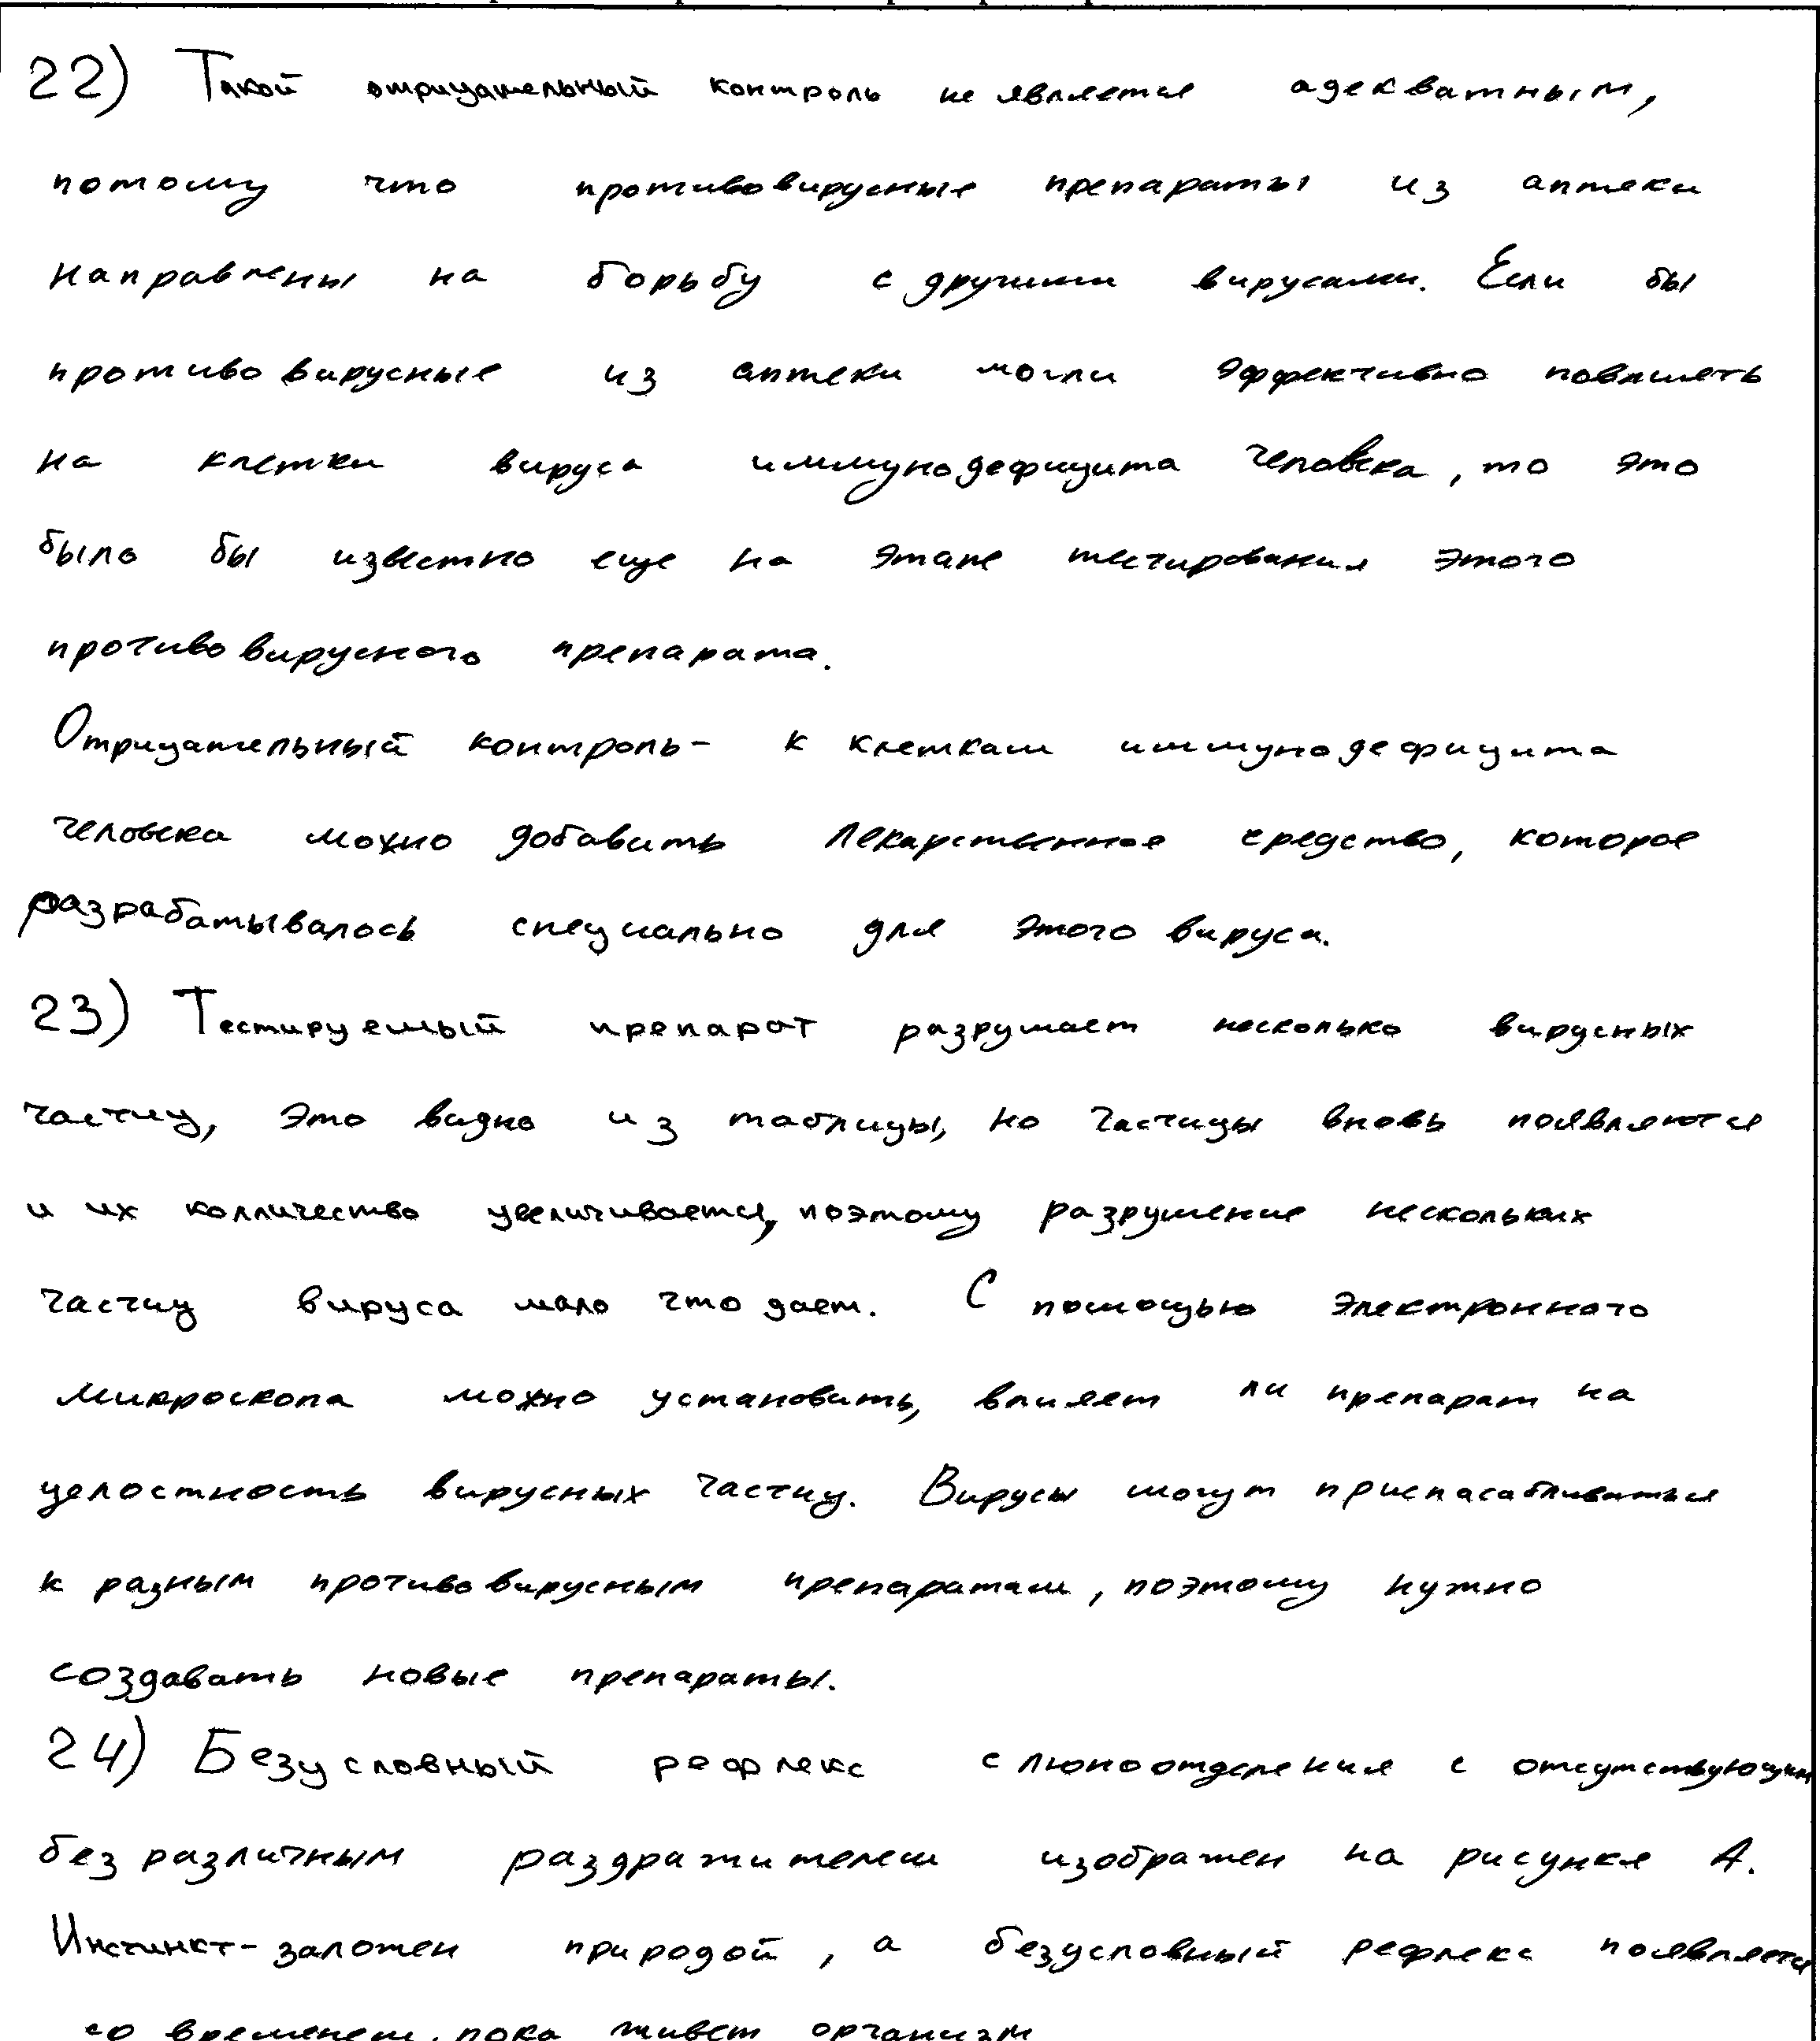 22) Такой отрицательный контроль не является адекватным,
потому что противовирусные препараты из аптеки
направлены на борьбу с другими вирусами. Если бы
противовирусные из аптеки могли эффективно повлиять
на клетки вируса иммунодефицита человека, то это
было бы известно еще на этапе тестирования этого
противовирусного препарата.
Отрицательный контроль- к клеткам иммунодефицита
человека можно добавить лекарственное средство, которое
разрабатывалось специально для этого вируса.
23) Тестируемый препарат разрушает несколько вирусных
частиц, это видно из таблицы, но частицы вновь появляются
и их колличество увеличивается, поэтому разрушение нескольких
частиц вируса мало что дает. С помощью электронного
микроскопа можно установить, влияет ли препарат на
целостность вирусных частиц. Вирусы могут приспасабливаться
к разным противовирусным препаратам, поэтому нужно
создавать новые препараты.
24) Безусловный рефлекс слюноотделения с отсутствующим
безразличным раздражителем изображен на рисунке А.
Инстинкт- заложен природой, а безусловный рефлекс появляется
со временем, пока живет организм